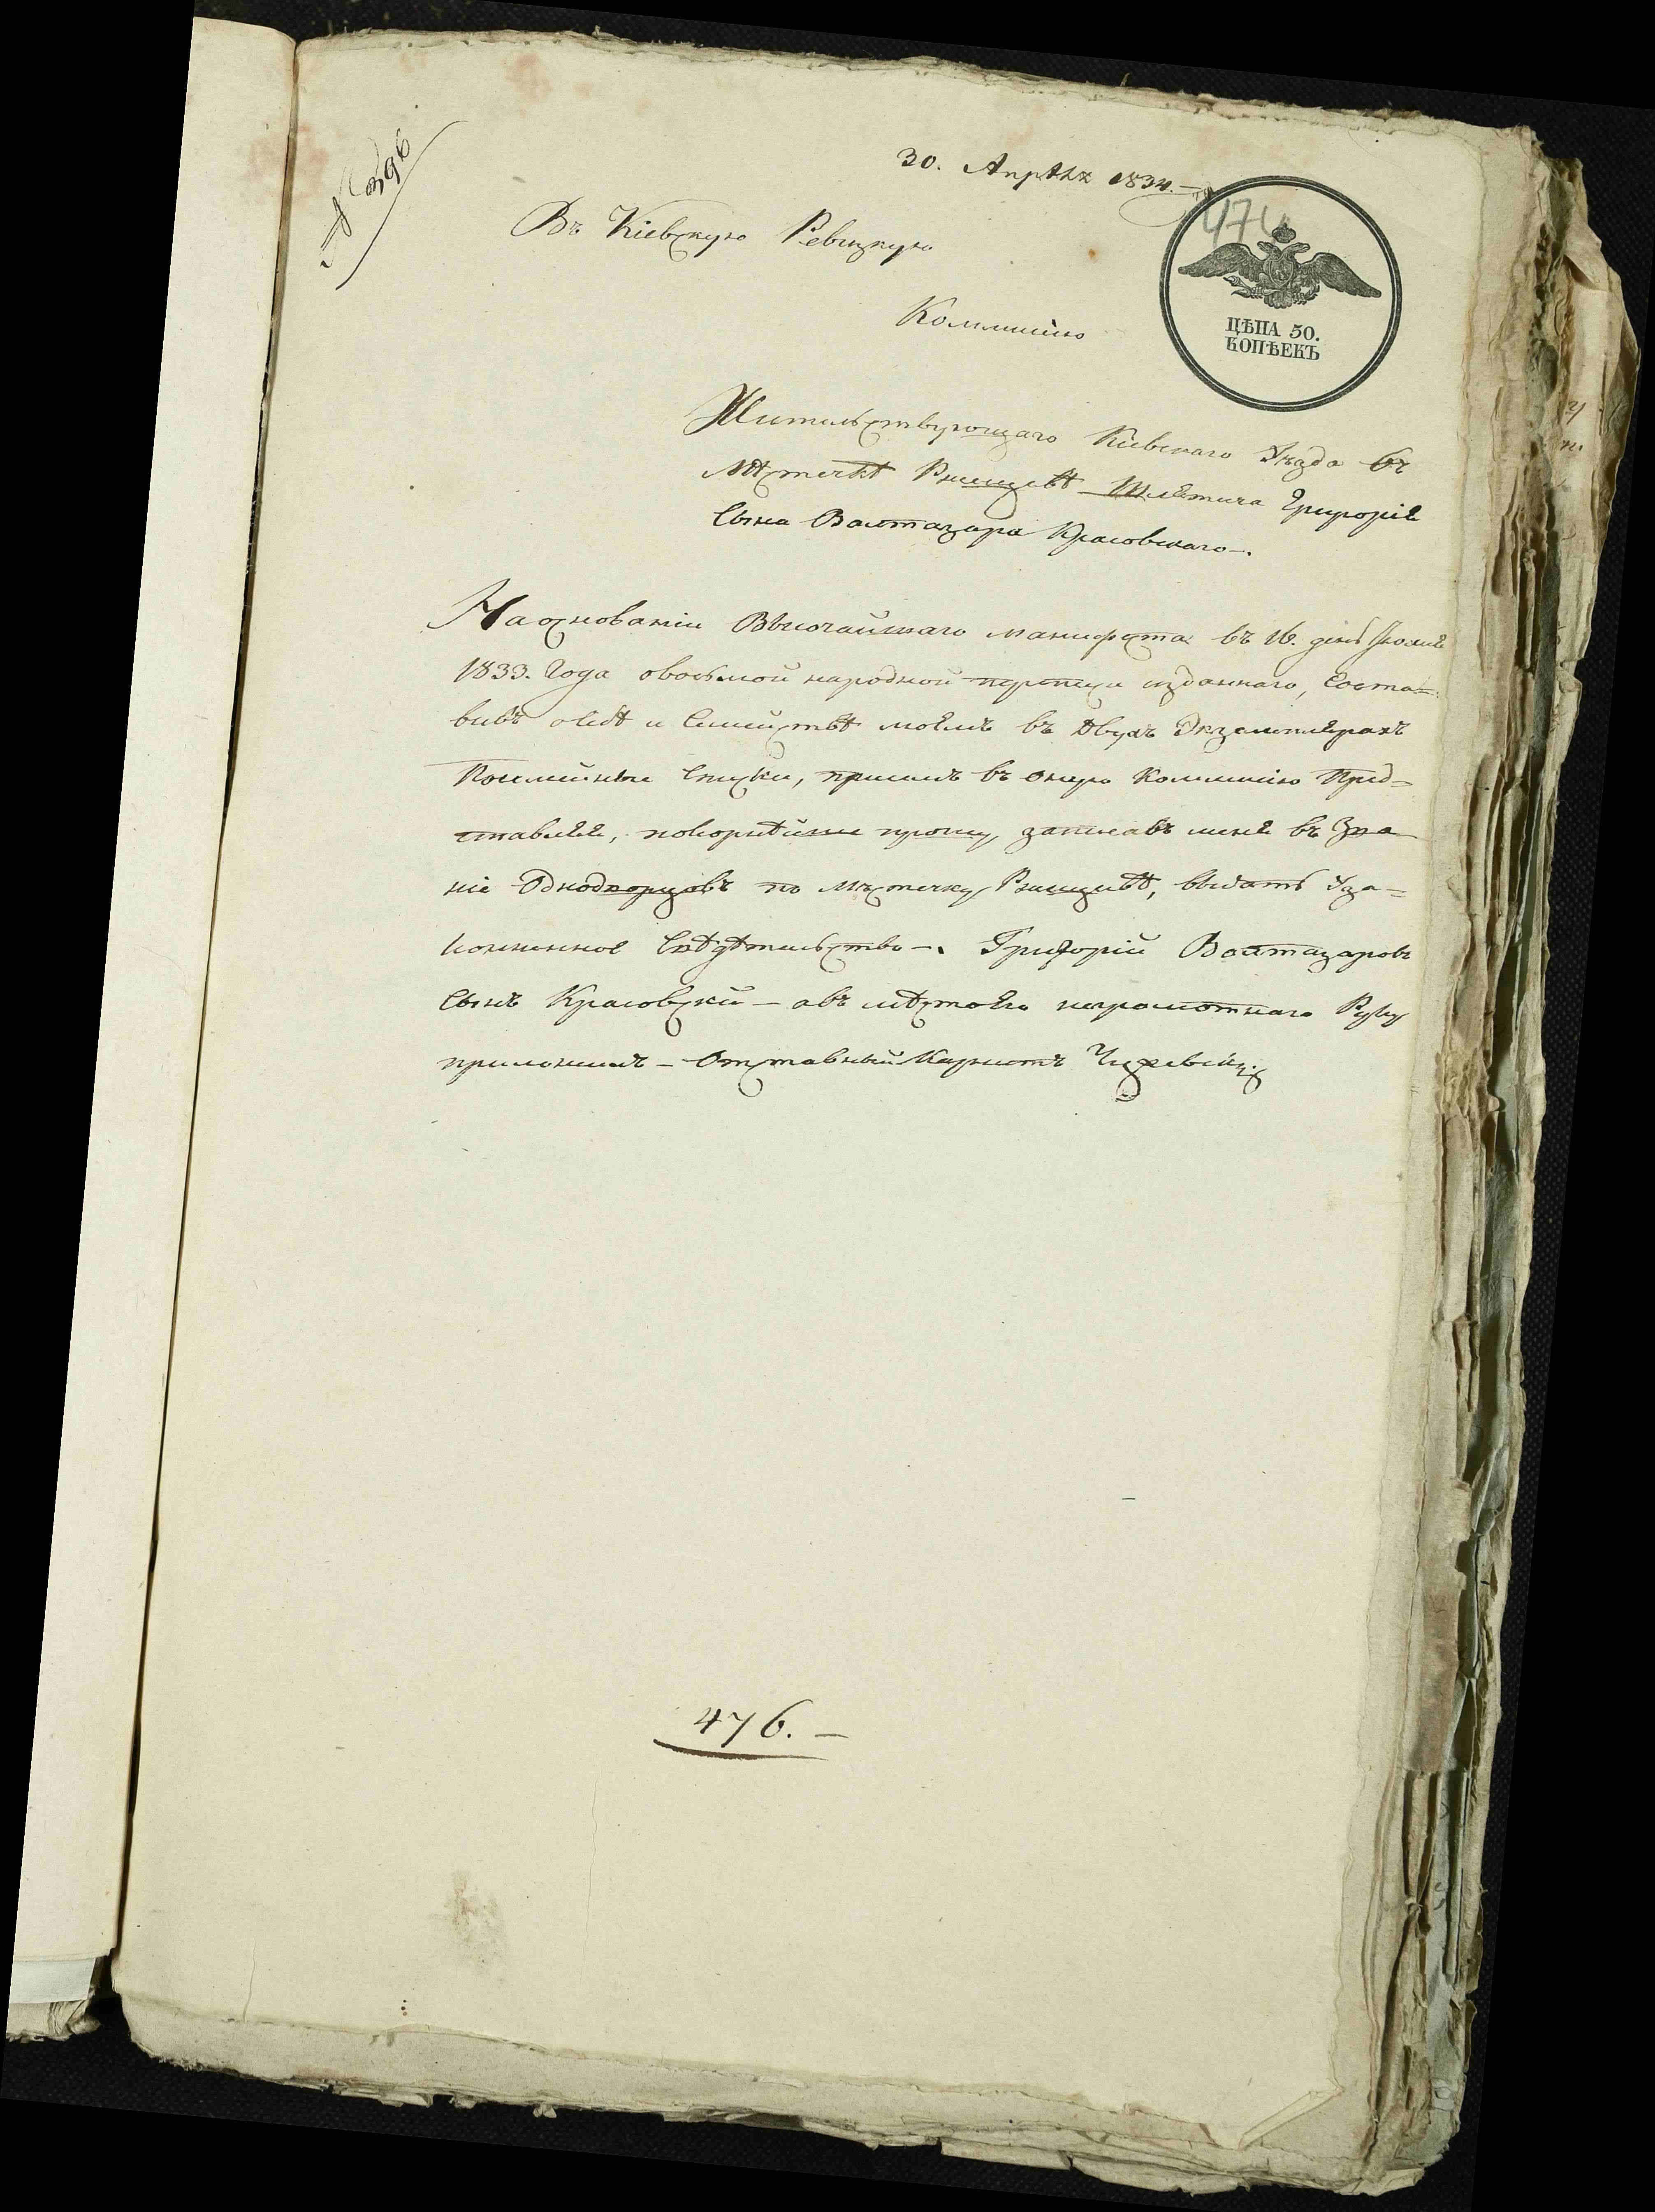 № 396
30. Апрѣля 1834.—
476
Въ Кіевскую Ревизкую
ЦѢНА 50.
КОПѢЕКЪ
Коммисію
Жительствующаго Кіевскаго Уѣзда въ
Мѣстечкѣ Ржищевѣ Шляхтича Григорія
Сына Валтазара Красовскаго—.
На основаніи Высочайшаго манифеста въ 16. день Іюня
1833. Года овосьмой народной переписи изданнаго, Соста=
вивъ осебѣ и Семействѣ моемъ въ двухъ Экземплярахъ
Посемейные Списки, присемъ въ оную Коммисію Пред=
ставляя, покорнѣйше прошу, записавъ меня въ Зва
ніе Однодворцовъ по Мѣстечку Ржищевѣ, выдать Уза=
коненное Свѣдѣтельство—. Григорій Валтазаровъ
Сынъ Красовскій — авъ мѣсто его неграмотнаго Руку
приложилъ — Отставный
476.—